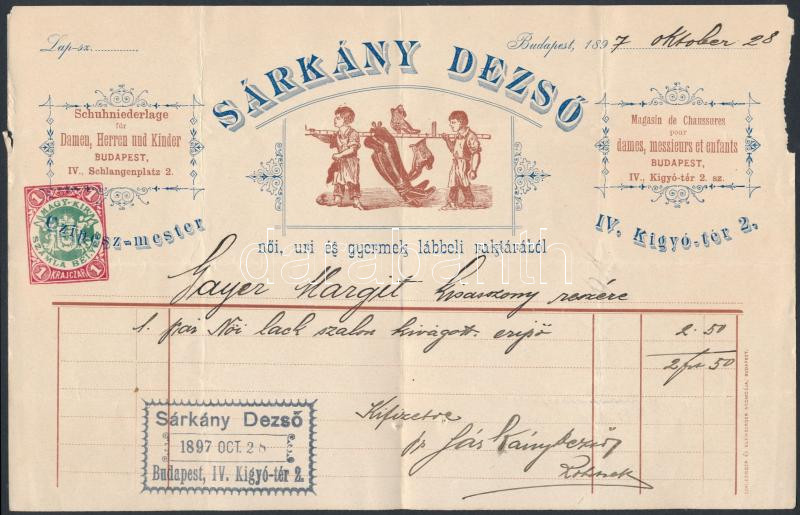 Lap-sz.
Budapest, 1897 oktober 28
SÁRKÁNY DEZSŐ
Schuhniederlage
für
Damen, Herren und Kinder
BUDAPEST,
IV., Schlangenplatz 2.
Magasin de Chaussures
pour
dames, messieurs et enfants
BUDAPEST,
IV., Kigyó-tér 2. sz.
Czipész-mester
IV. Kigyó-tér 2.
1 1
KRAJCZÁR
1 1
női, uri és gyermek lábbeli raktárából
darabanth.com
Gayer Margit kisasszony részére
1. pár Női lack szalon kivágott czipő 2.50
2 frt 50
Kifizetve
Sárkány Dezső
Sárkány Dezső
1897 OCT. 28
Budapest, IV. Kigyó-tér 2.